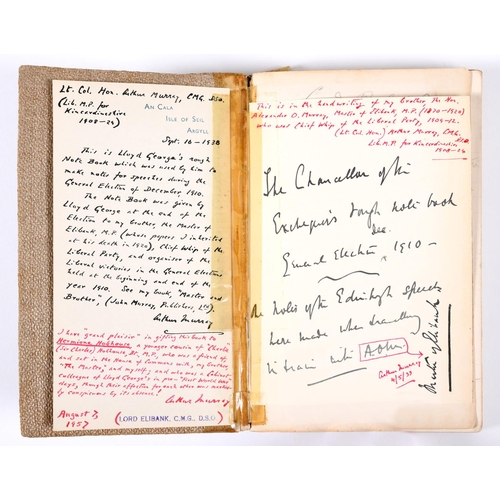 Lt. Col. Hon. Arthur Murray, C.M.G., D.S.O.
(Lib. M.P. for
Kincardineshire
1908-23)
AN CALA
ISLE OF SOIL
ARGYLL
Sept. 16-1938
This is Lloyd George's rough
Note Book which was used by him to
make notes for speeches during the
General Election of December, 1910.
The Note Book was given by
Lloyd George at the end of the
Election to my brother, the Master of
Elibank, M.P. (whose papers I inherited
at his death in 1920), Chief Whip of the
Liberal Party, and organiser of the
Liberal victories in the General Elections
held at the beginning and end of the
year 1910. See my book, "Master and
Brother", (John Murray, Publishers, Ltd).
Arthur Murray
I have "grand plaisir" in gifting this book to
Hermione Hobhouse, a younger cousin of Charles
(Sir Charles) Hobhouse, Bt. M.P. who was a friend of,
and sat in the House of Commons with, my brother,
"The Master", and myself; and who was a Cabinet
colleague of Lloyd George's in pre-First World War
days, though their affection for each other was marked
by conspicuous by its absence!
Arthur Murray
August 7,
1957
(LORD ELIBANK, C.M.G., D.S.O.)
This is in the handwriting of my brother, the Hon.
Alexander O. Murray, Master of Elibank, M.P. (1870-1920)
who was Chief Whip of the Liberal Party, 1909-12.
(Lt. Col. Hon.) Arthur Murray, C.M.G.,
D.S.O.
Lib. M.P. for Kincardineshire
1908-23
The Chancellor of the
Exchequer's rough note book
General Election Dec. 1910 -
The Notes of the Edinburgh speech
here made when travelling
in train with
Arthur Murray
Master of Elibank